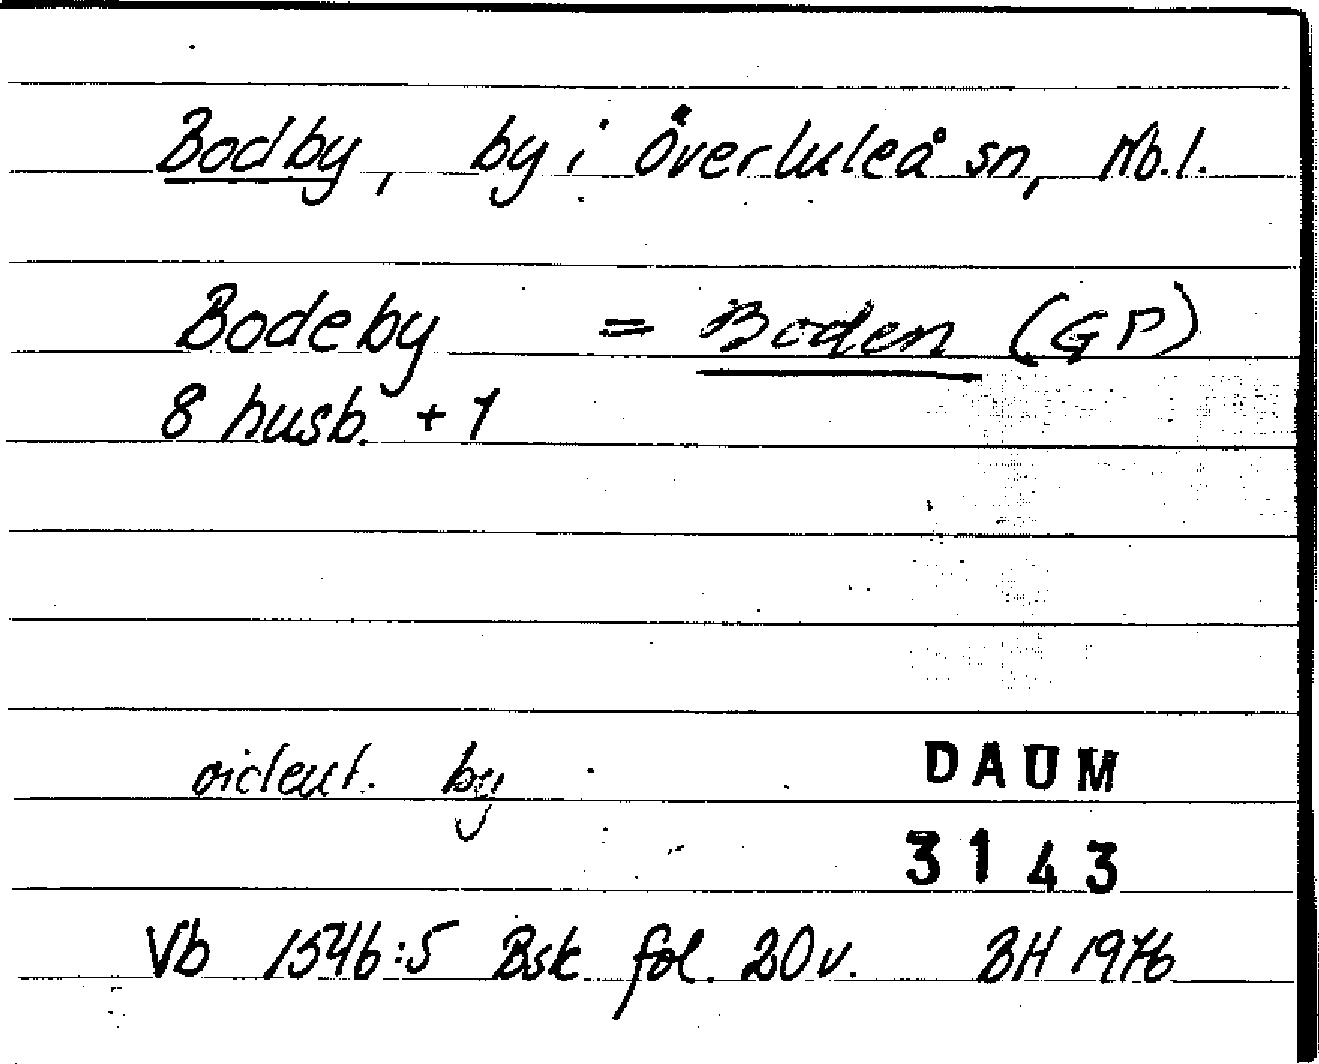 Bodby, by i Överluleå sn, Nb.l.
Bodeby = Boden (GP)
8 husb. + 1
oident. by
DAUM
3143
Vb 1546:5 Bsk fol. 20v. BH 1976